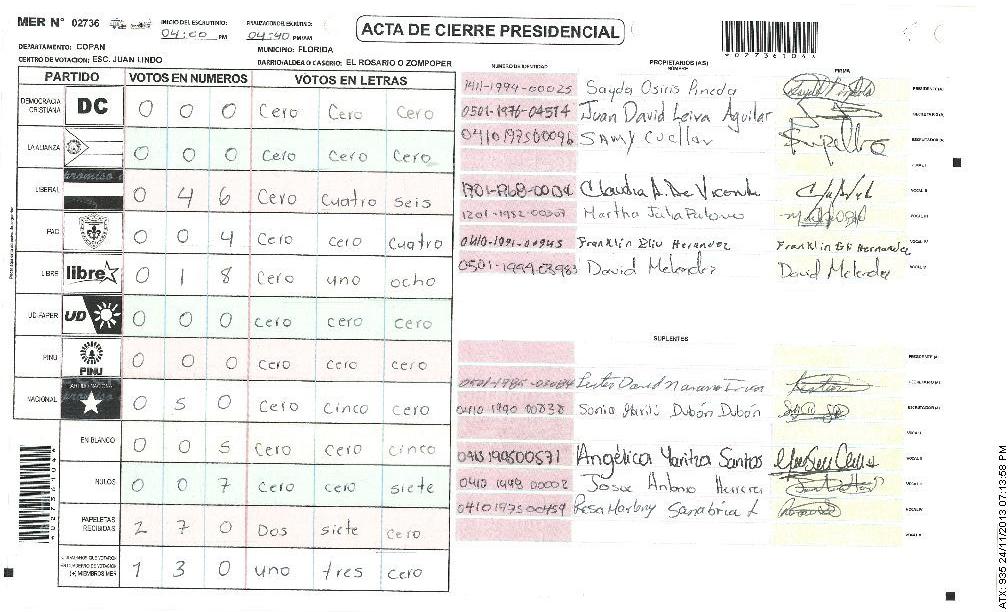 MER N° 02736
INICIO DEL ESCRUTINIO: 04:00 PM
FINALIZACION DEL ESCRUTINIO: 04:40 PM/AM
ACTA DE CIERRE PRESIDENCIAL
*02736104*
DEPARTAMENTO: COPAN
MUNICIPIO: FLORIDA
CENTRO DE VOTACION: ESC. JUAN LINDO
BARRIO/ALDEA O CASERIO: EL ROSARIO O ZOMPOPER
PARTIDO VOTOS EN NUMEROS VOTOS EN LETRAS
DEMOCRACIA CRISTIANA DC 0 0 0 Cero Cero Cero
LA ALIANZA 0 0 0 Cero Cero Cero
LIBERAL 0 4 6 Cero Cuatro seis
PAC 0 0 4 Cero cero cuatro
LIBRE libre 0 1 8 Cero uno ocho
UD-FAPER UD 0 0 0 cero cero cero
PINU PINU 0 0 0 cero cero cero
NACIONAL 0 5 0 Cero Cinco cero
EN BLANCO 0 0 5 Cero cero cinco
NULOS 0 0 7 Cero cero siete
PAPELETAS RECIBIDAS 2 7 0 Dos siete Cero
1 3 0 uno tres cero
NUMERO DE IDENTIDAD PROPIETARIOS (AS) NOMBRE FIRMA
1411-1994-00025 Sayda Osiris Pineda PRESIDENTE (A)
0501-1976-04574 Juan David Leiva Aguilar SECRETARIO (A)
0410197500096 SAMY Cuellar ESCRUTADOR (A)
VOCAL I
Claudia A. De Vicente VOCAL II
Martha Julia VOCAL III
0410-1991-00945 Franklin Eliu Herandez Franklin Eli Hernandez VOCAL IV
David Melendez David Melendez VOCAL V
SUPLENTES
PRESIDENTE (A)
David SECRETARIO (A)
0410 1990 00838 Sonia Dubón Dubón ESCRUTADOR (A)
VOCAL I
Angélica Yaritza Santos VOCAL II
Josue Antonio Herrera VOCAL III
0410197500459 Rosa Sanabria L VOCAL IV
VOCAL V
ATX: 935 24/11/2013 07:13:58 PM